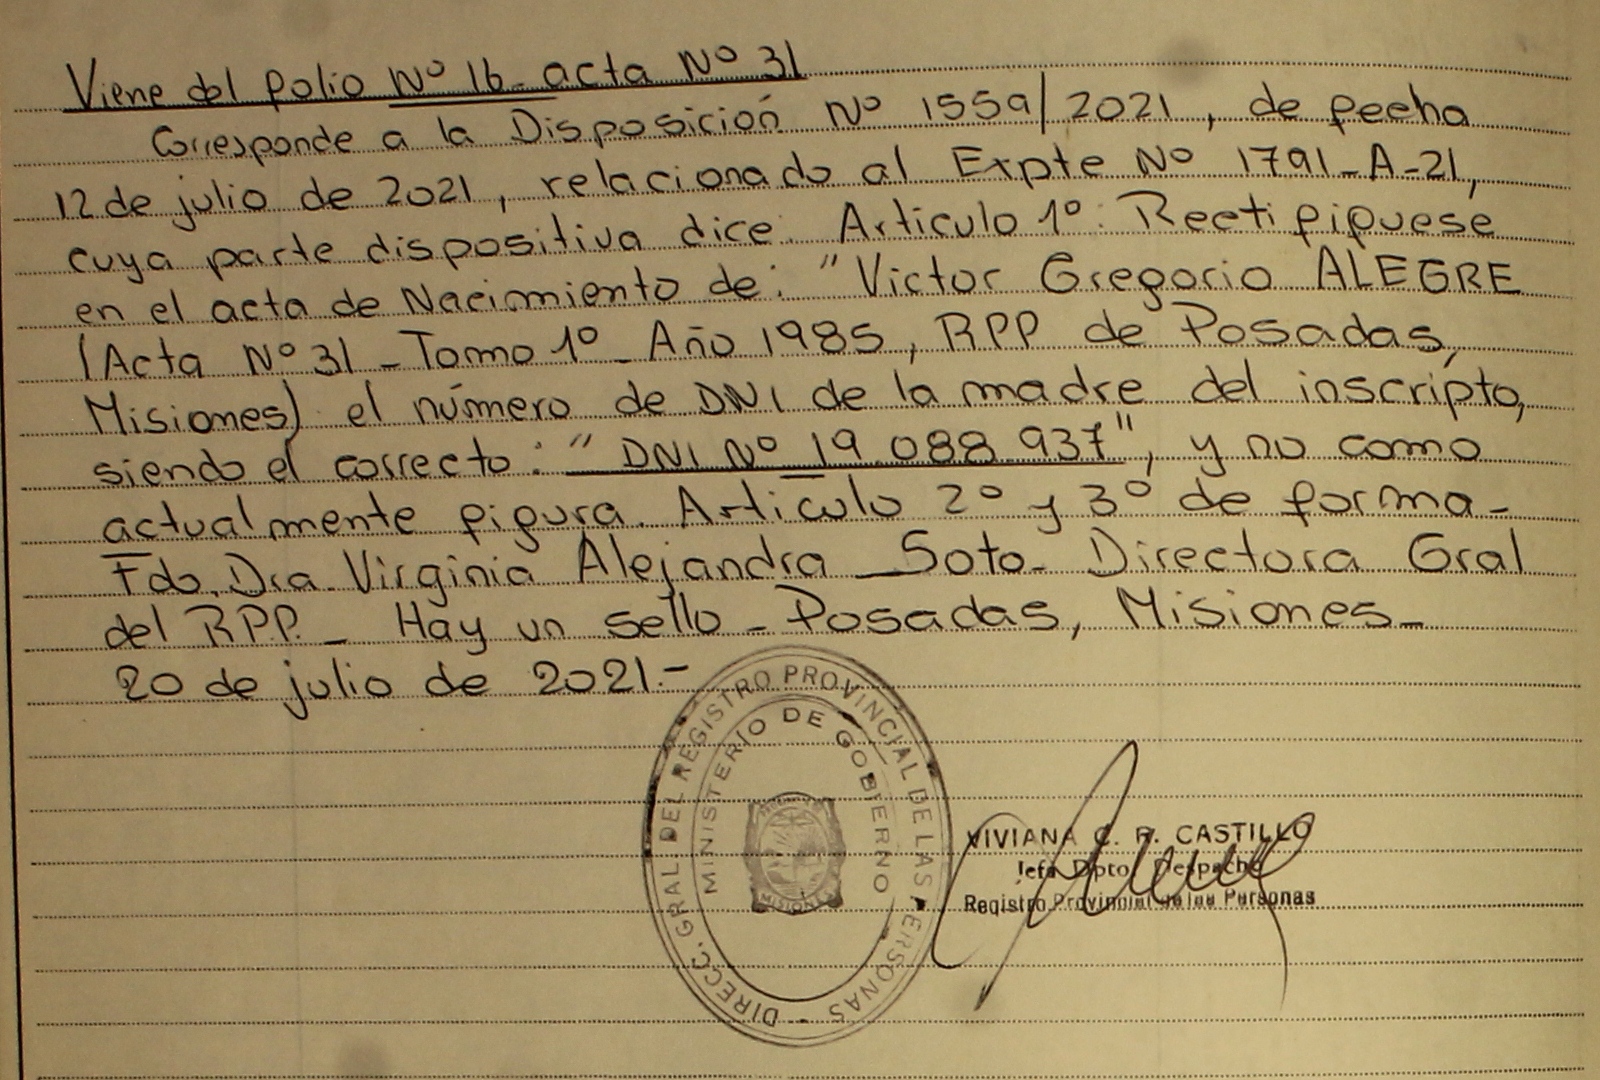 Viene del folio Nº 16 - acta Nº 31
Corresponde a la Disposición Nº 1559/2021, de fecha
12 de julio de 2021, relacionado al Expte Nº 1791-A-21,
cuya parte dispositiva dice: Articulo 1º: Rectifiquese
en el acta de Nacimiento de: "Victor Gregorio ALEGRE
(Acta Nº 31 - Tomo 1º - Año 1985, RPP de Posadas,
Misiones) el número de DNI de la madre del inscripto,
siendo el correcto: "DNI Nº 19.088.937", y no como
actualmente figura. Artículo 2º y 3º de forma-
Fdo. Dra. Virginia Alejandra Soto - Directora Gral
del RPP. - Hay un sello - Posadas, Misiones -
20 de julio de 2021.-
DIRECC. GRAL. DEL REGISTRO PROVINCIAL DE LAS PERSONAS -
MINISTERIO DE GOBIERNO
MISIONES
VIVIANA C. R. CASTILLO
Jefa Dpto. Despacho
Registro Provincial de las Personas